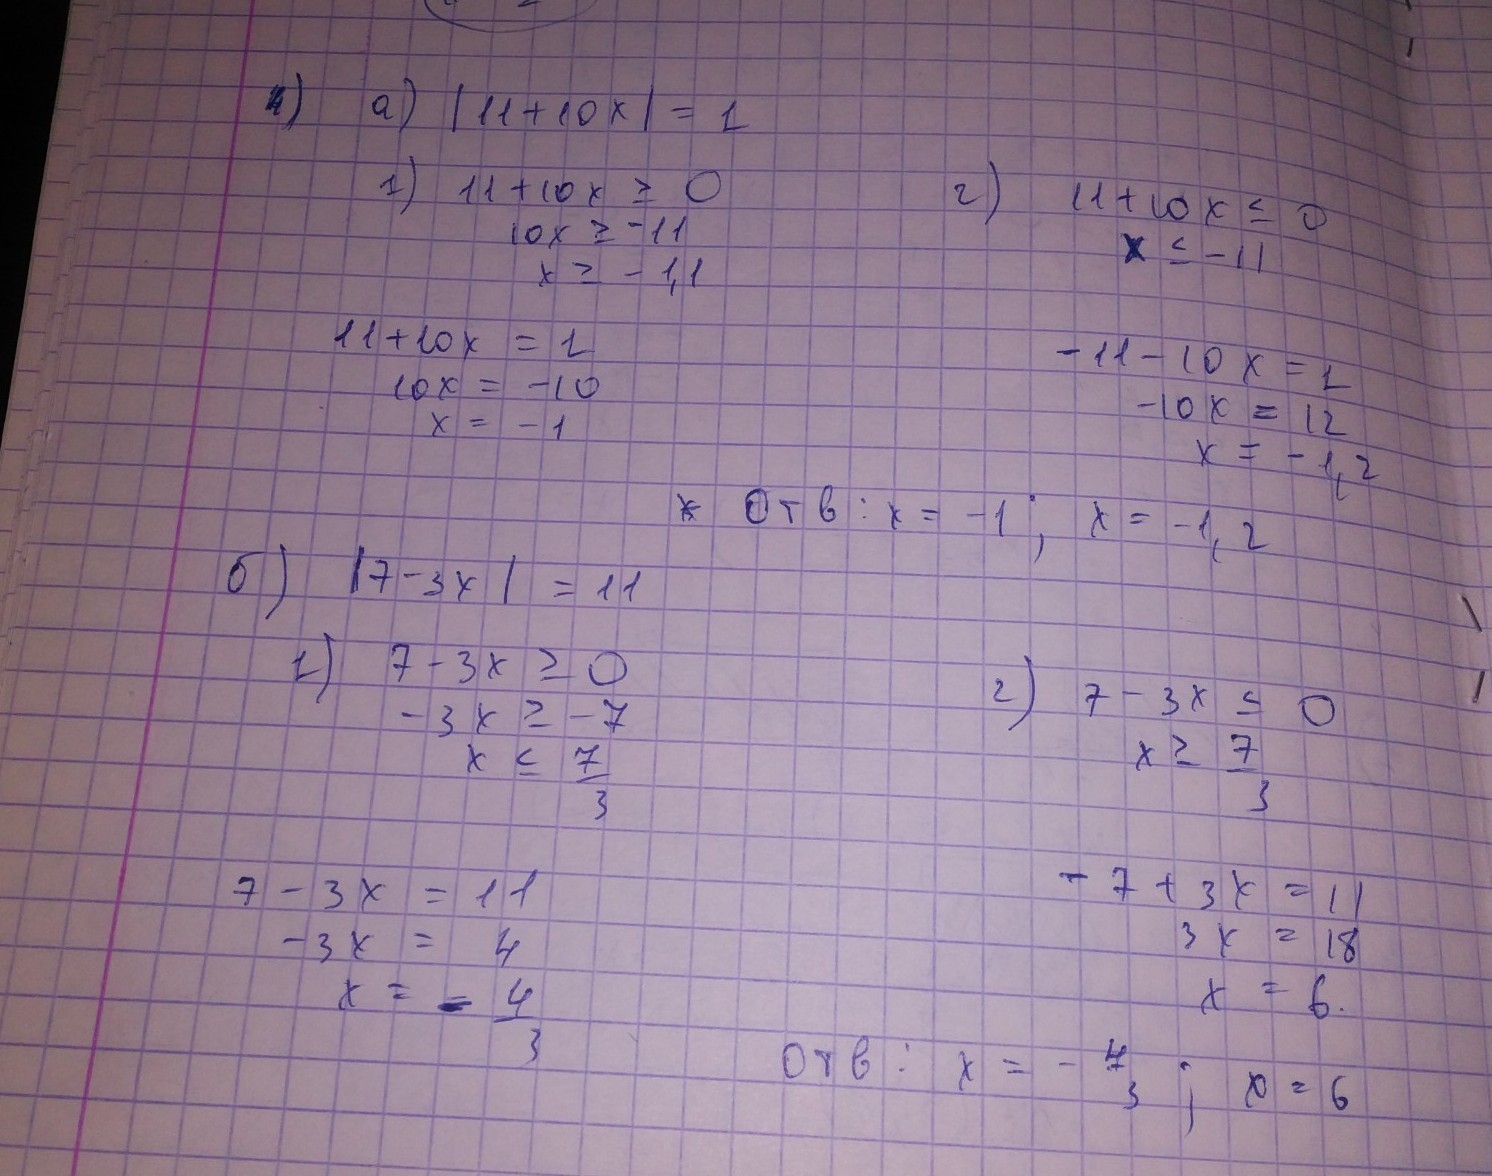 4) а) |11+10x| = 1
1) 11+10x ≥ 0
10x ≥ -11
x ≥ -1,1
11+10x = 1
10x = -10
x = -1
2) 11+10x ≤ 0
x ≤ -11
-11-10x = 1
-10x = 12
x = -1,2
Отв: x = -1; x = -1,2
б) |7-3x| = 11
1) 7-3x ≥ 0
-3x ≥ -7
x ≤ 7/3
7-3x = 11
-3x = 4
x = -4/3
2) 7-3x ≤ 0
x ≥ 7/3
-7+3x = 11
3x = 18
x = 6.
Отв: x = -4/3; x = 6